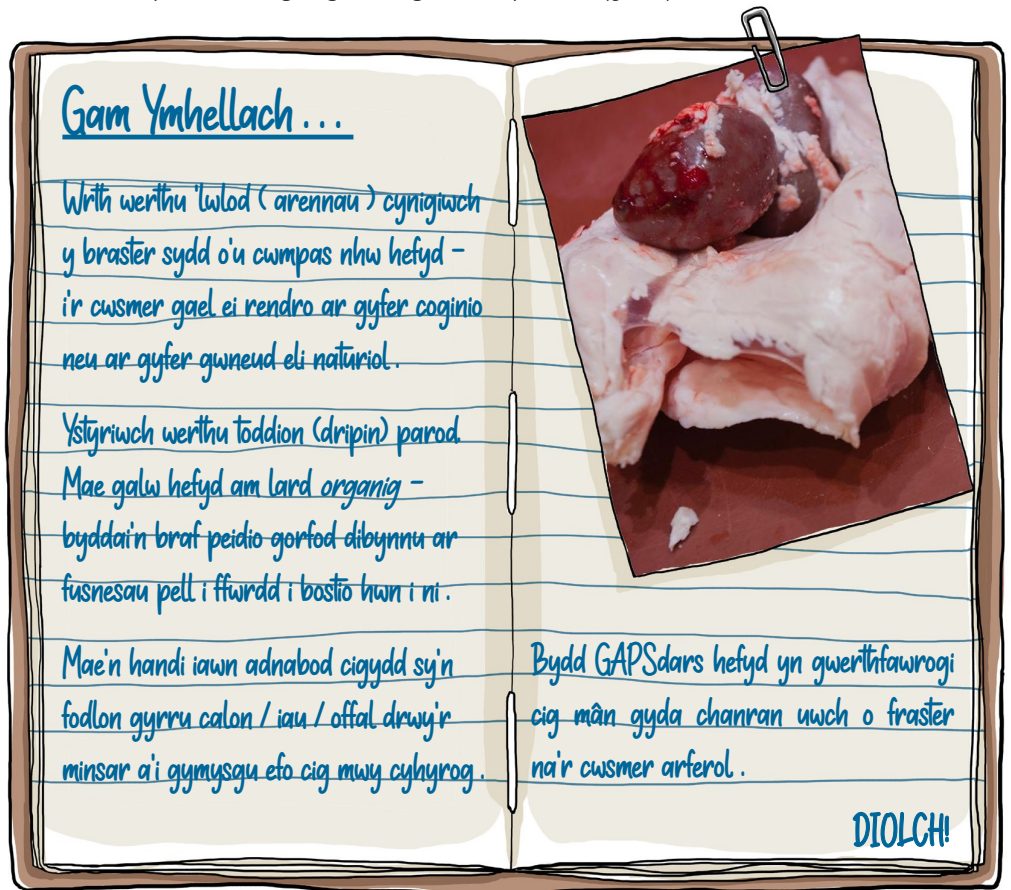 Gam Ymhellach . . .
Wrth werthu 'lwlod ( arennau ) cynigiwch
y braster sydd o'u cwmpas nhw hefyd –
i'r cwsmer gael ei rendro ar gyfer coginio
neu ar gyfer gwneud eli naturiol .
Ystyriwch werthu toddion (dripin) parod.
Mae galw hefyd am lard organig –
byddai'n braf peidio gorfod dibynnu ar
fusnesau pell i ffwrdd i bostio hwn i ni .
Mae'n handi iawn adnabod cigydd sy'n
fodlon gyrru calon / iau / offal drwy'r
minsar a'i gymysgu efo cig mwy cyhyrog .
Bydd GAPSdars hefyd yn gwerthfawrogi
cig mân gyda chanran uwch o fraster
na'r cwsmer arferol .
DIOLCH!